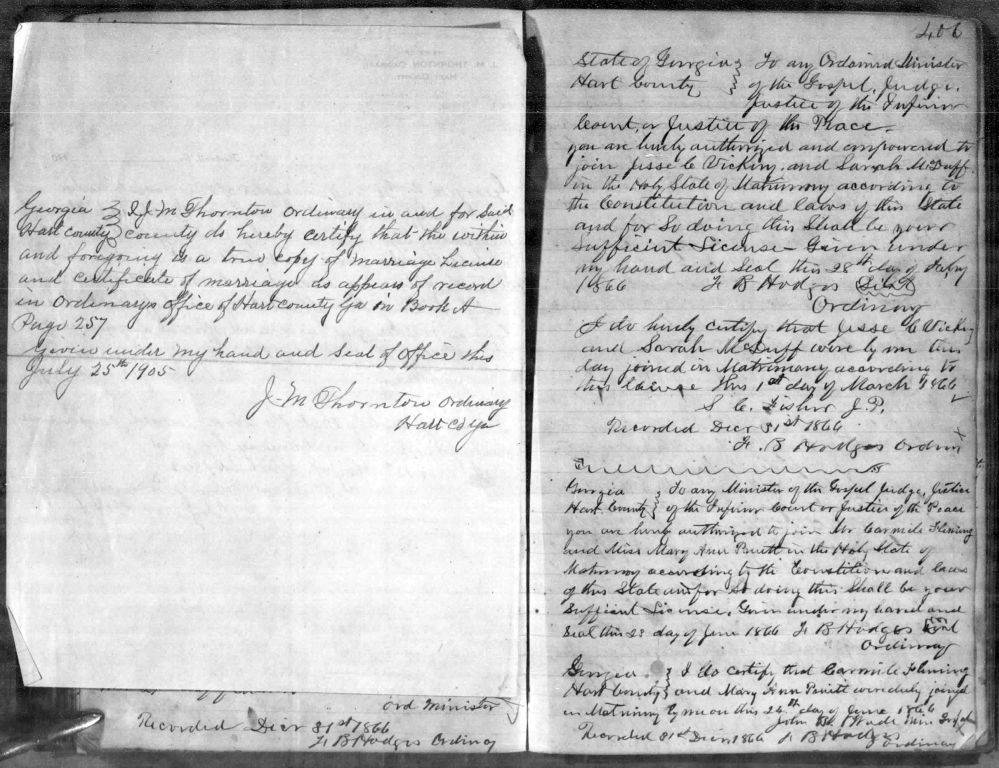 Georgia } I J. M Thornton ordinary in and for Said
Hart County } county do hereby certify that the within
and foregoing is a true copy of marriage License
and certificate of marriage as appears of record
in Ordinarys office of Hart County Ga in Book A
Page 257
Given under my hand and Seal of Office this
July 25th 1905
J-M Thornton ordinary
Hart Co Ga
ord Minister
Recorded Decr 31st 1866
F. B Hodges Ordinary
406
State of Georgia } To any Ordained Minister
Hart County } of the Gospel, Judge,
Justice of the Inferior
Court, or Justice of the Peace-
you are hereby authorized and empowered to
join Jesse C Vickery and Sarah McDuff
in the Holy State of Matrimony according to
the Constitution and laws of this State
and for So doing this Shall be your
Sufficient License- Given under
my hand and Seal this 28th day of Feby
1866 F B Hodges Seal
Ordinary
I do hereby Certify that Jesse C Vickery
and Sarah McDuff were by me this
day joined in Matrimony according to
this license this 1st day of March 1866
S. C. Fisher J. P.
Recorded Decr 31st 1866
F. B Hodges Ordin
Georgia } To any Minister of the Gospel Judge, Justice
Hart County } of the Inferior Court or Justice of the Peace
you are hereby authorized to join Mr Carmile Fleming
and Miss Mary Ann Pruitt in the Holy State of
Matrimony according to the Constitution and laws
of this State and for So doing this Shall be your
Sufficient License. Given under my hand and
Seal this 23 day of June 1866 F B Hodges Seal
Ordinary
Georgia } I do certify that Carmile Fleming
Hart County } and Mary Ann Pruitt were duly joined
in Matrimony by me on this 24th day of June 1866
John Wade Min Gospel
Recorded 31st Decr 1866 F B Hodges
Ordinary